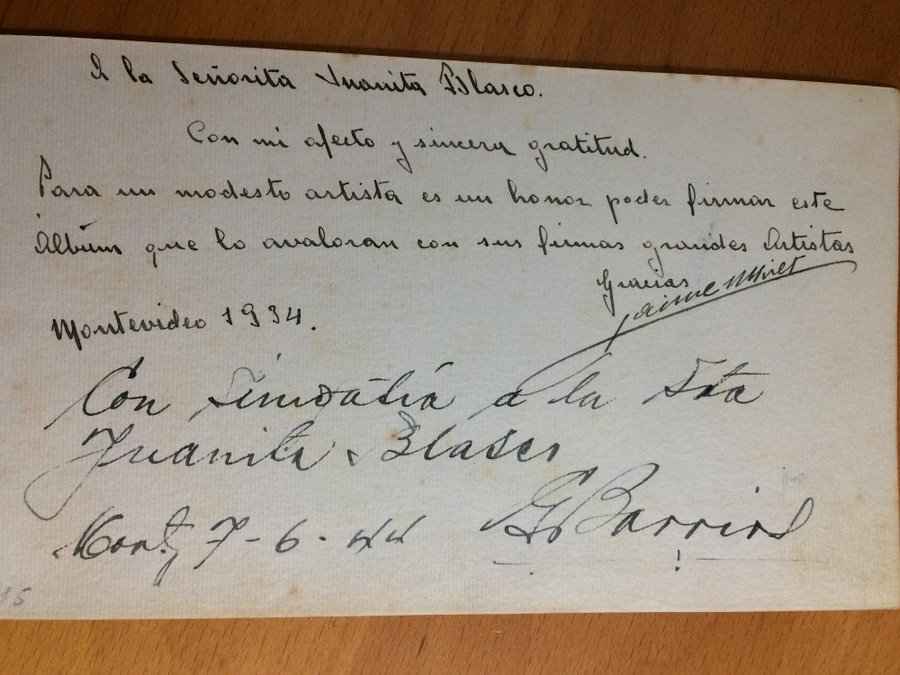 A la Señorita Juanita Blasco.
Con mi afecto y sincera gratitud.
Para un modesto artista es un honor poder firmar este
Álbum que lo avaloran con sus firmas grandes Artistas
Gracias
Jaime
Montevideo 1934.
Con Simpatía a la Sta
Juanita Blasco
G. Barrios
Mont, 7-6-44
15